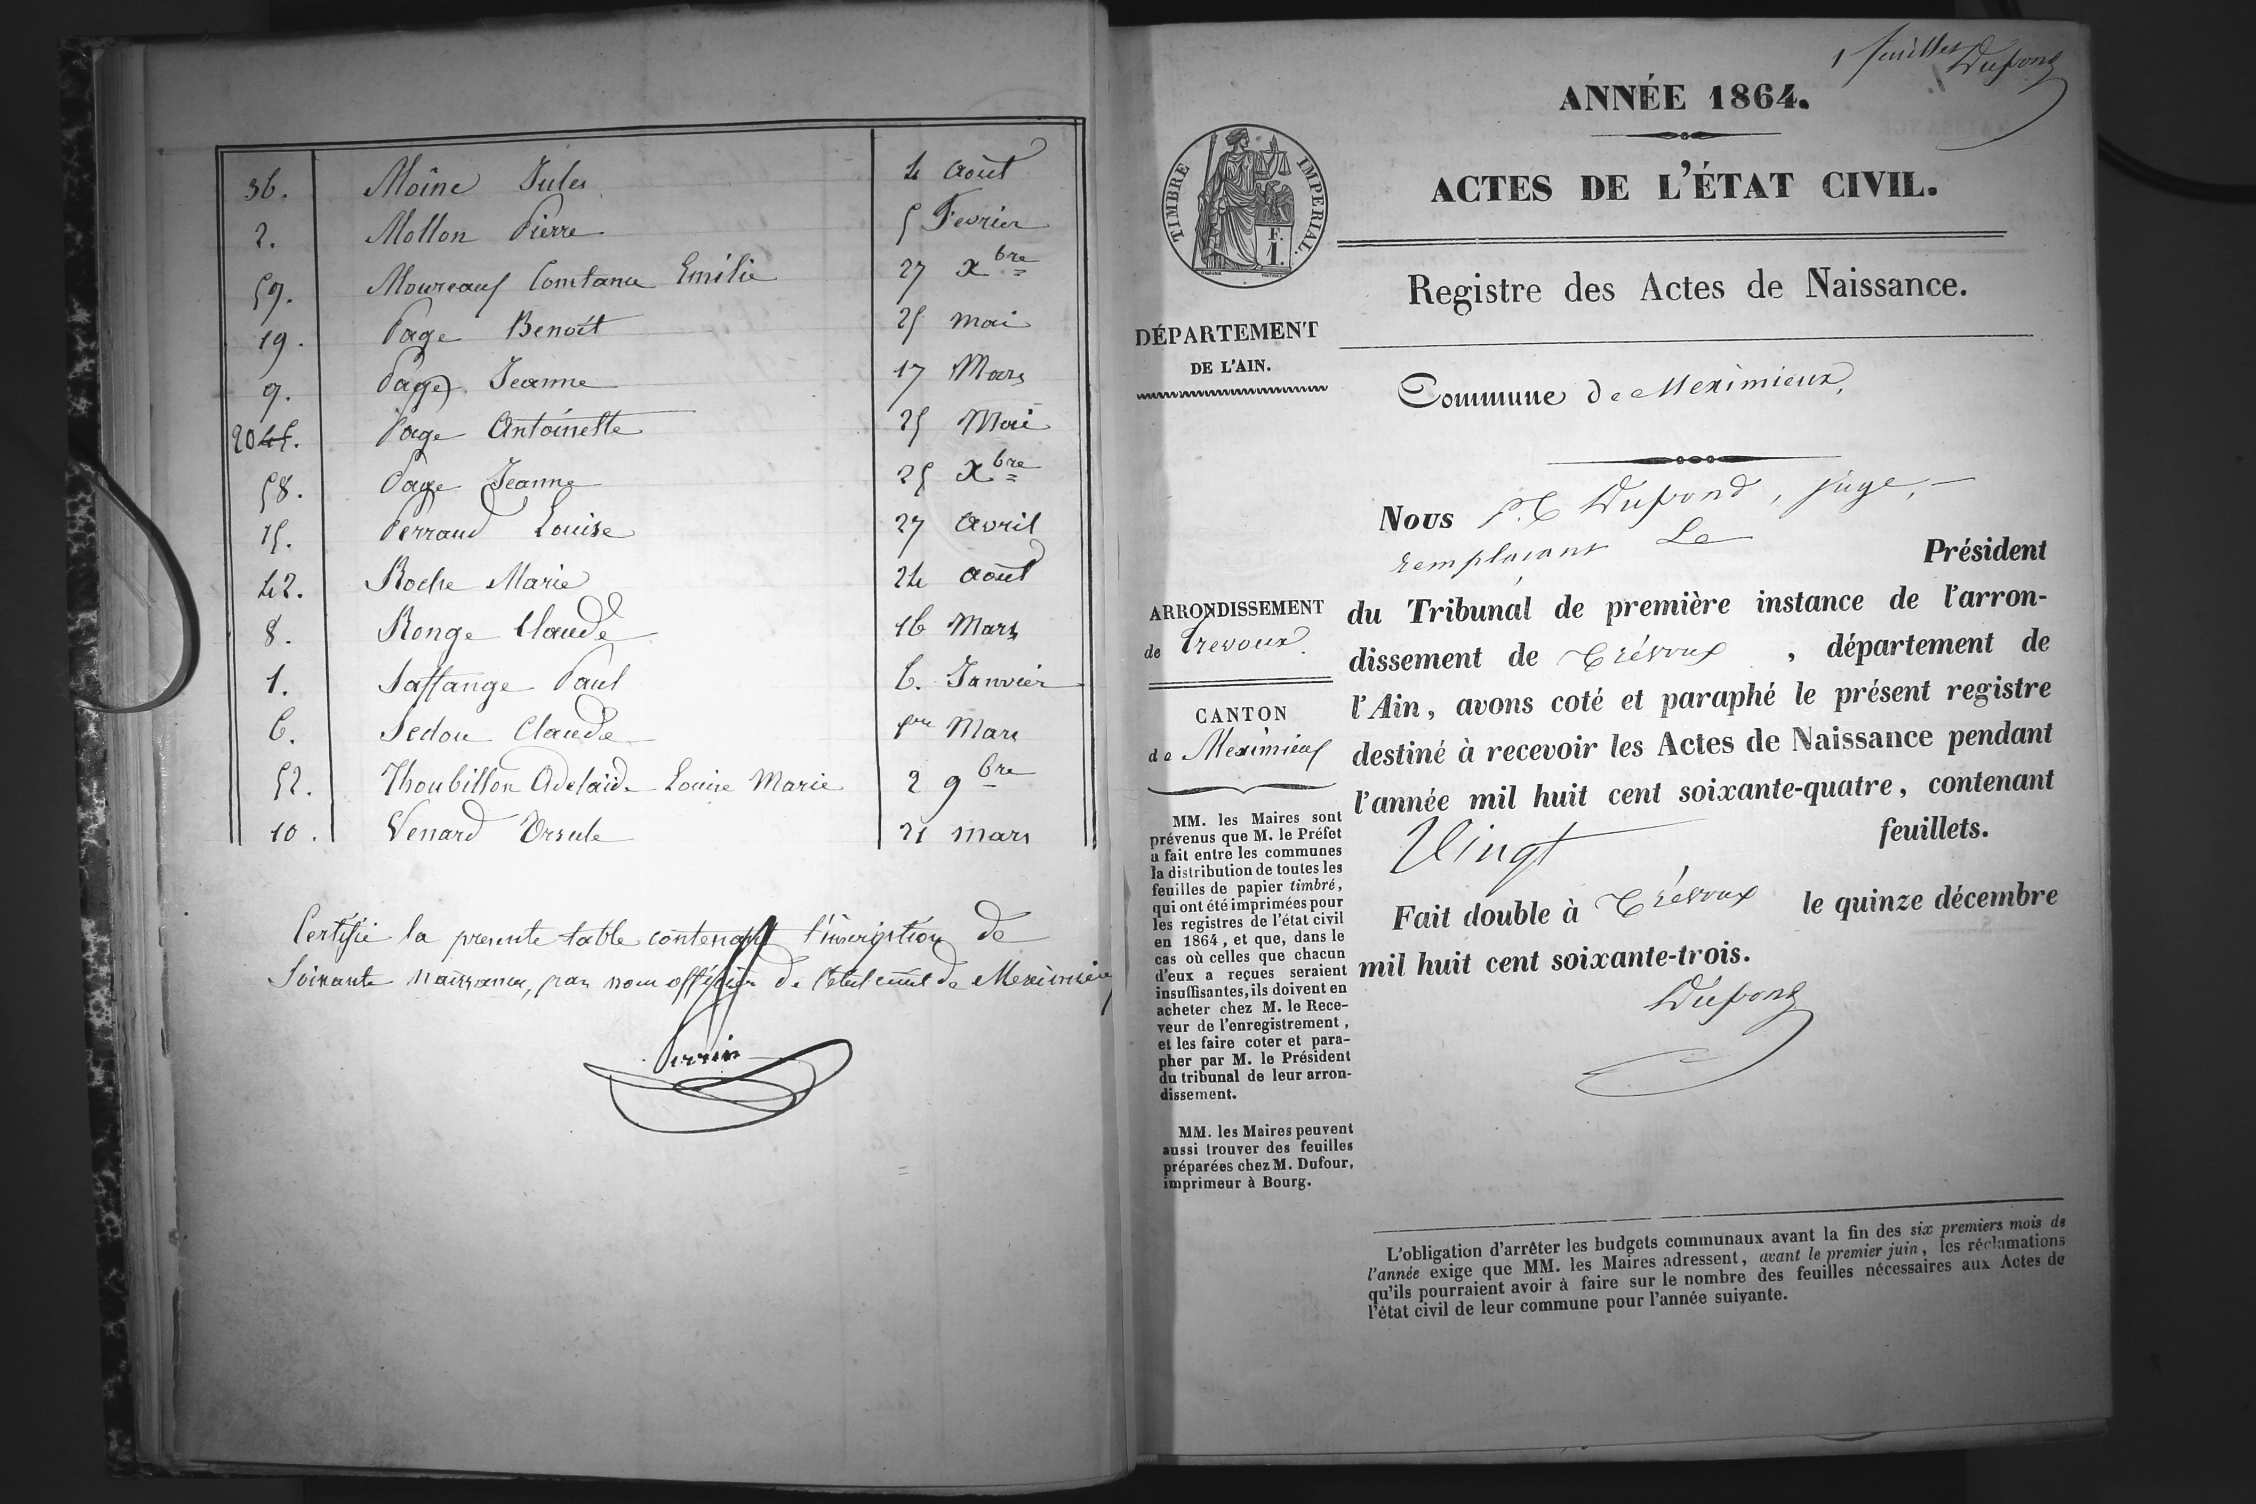 36. Moîne Jules 4 août
2. Mollon Pierre 5 Fevrier
59. Moureaux Constance Emélie 27 Xbre
19. Page Benoît 25 mai
9. Page Jeanne 17 Mars
20 Page Antoinette 25 Mai
58. Page Jeanne 25 Xbre
15. Perraud Louise 27 avril
42. Roche Marie 24 août
8. Ronge Claude 16 Mars
1. Paul 6. Janvier
6. Sedou Claude 1er Mars
52. Thoubillon Adelaïde Louise Marie 2 9bre
10. Venard Ursule 21 mars
Certifié la presente table contenant l'inscription de
Soixante naissances, par nous officier de l'état civil de Meximieux
Perrin
1 feuillet Dupond
ANNÉE 1864.
ACTES DE L'ÉTAT CIVIL.
TIMBRE IMPERIAL.
F.
1.
Registre des Actes de Naissance.
DÉPARTEMENT
DE L'AIN.
Commune de Meximieux,
Nous Dupond, juge,
remplaçant Le Président
du Tribunal de première instance de l'arron-
dissement de Trévoux, département de
l'Ain, avons coté et paraphé le présent registre
destiné à recevoir les Actes de Naissance pendant
l'année mil huit cent soixante-quatre, contenant
Vingt feuillets.
Fait double à Trévoux le quinze décembre
mil huit cent soixante-trois.
Dupond
ARRONDISSEMENT
de Trevoux.
CANTON
de Meximieux
MM. les Maires sont
prévenus que M. le Préfet
a fait entre les communes
la distribution de toutes les
feuilles de papier timbré,
qui ont été imprimées pour
les registres de l'état civil
en 1864, et que, dans le
cas où celles que chacun
d'eux a reçues seraient
insuffisantes, ils doivent en
acheter chez M. le Rece-
veur de l'enregistrement,
et les faire coter et para-
pher par M. le Président
du tribunal de leur arron-
dissement.
MM. les Maires peuvent
aussi trouver des feuilles
préparées chez M. Dufour,
imprimeur à Bourg.
L'obligation d'arrêter les budgets communaux avant la fin des six premiers mois de
l'année exige que MM. les Maires adressent, avant le premier juin, les réclamations
qu'ils pourraient avoir à faire sur le nombre des feuilles nécessaires aux Actes de
l'état civil de leur commune pour l'année suivante.